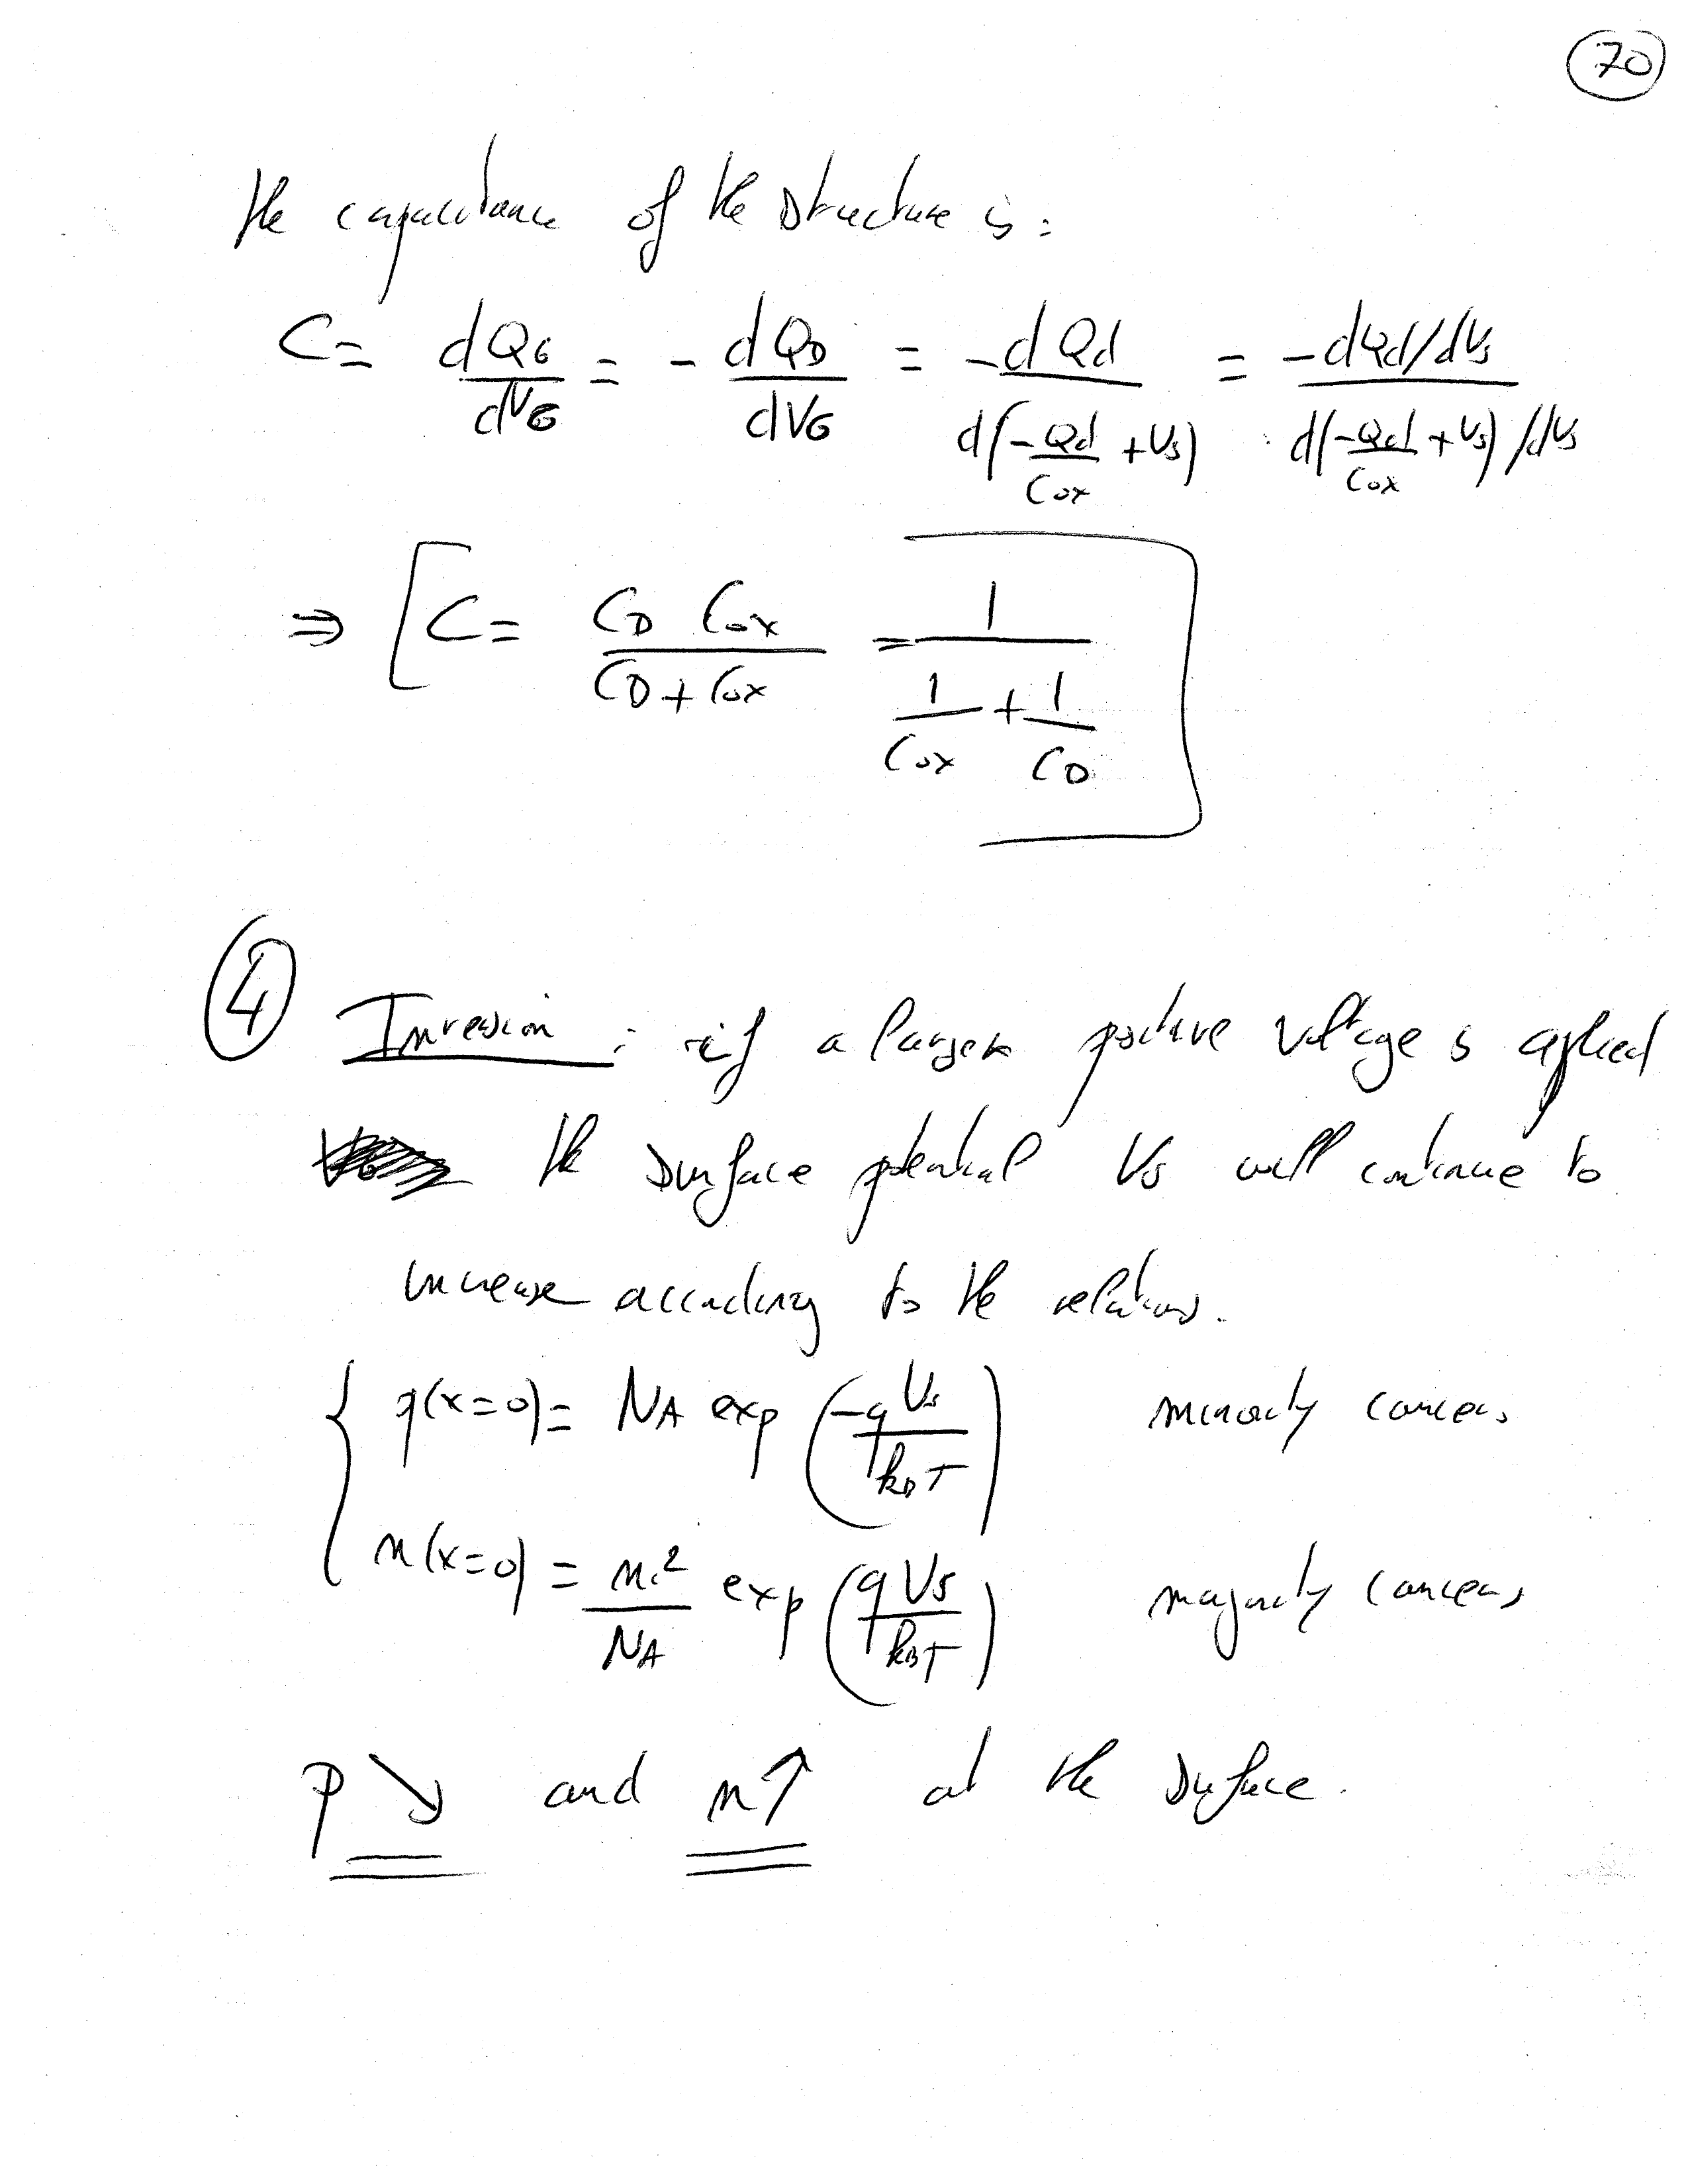 70
the capacitance of the structure is:
C = dQG/dVG = - dQD/dVG = -dQd / d(-Qd/Cox + Vs) = -dQd/dVs / d(-Qd/Cox + Vs)/dVs
⇒ [C = CD Cox / (CD + Cox) = 1 / (1/Cox + 1/CD)]
④ Inversion : if a larger positive voltage is applied
the surface potential Vs will continue to
increase according to the relations.
p(x=0) = NA exp(-qVs / kBT) minority carriers
n(x=0) = ni²/NA exp(qVs / kBT) majority carriers
p ↘ and n ↑ at the surface.